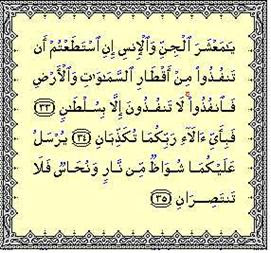 يَـٰمَعْشَرَ ٱلْجِنِّ وَٱلْإِنسِ إِنِ ٱسْتَطَعْتُمْ أَن
تَنفُذُوا۟ مِنْ أَقْطَارِ ٱلسَّمَـٰوَٰتِ وَٱلْأَرْضِ
فَٱنفُذُوا۟ ۚ لَا تَنفُذُونَ إِلَّا بِسُلْطَـٰنٍ ﴿٣٣﴾
فَبِأَىِّ ءَالَآءِ رَبِّكُمَا تُكَذِّبَانِ ﴿٣٤﴾ يُرْسَلُ
عَلَيْكُمَا شُوَاظٌ مِّن نَّارٍ وَنُحَاسٌ فَلَا
تَنتَصِرَانِ ﴿٣٥﴾